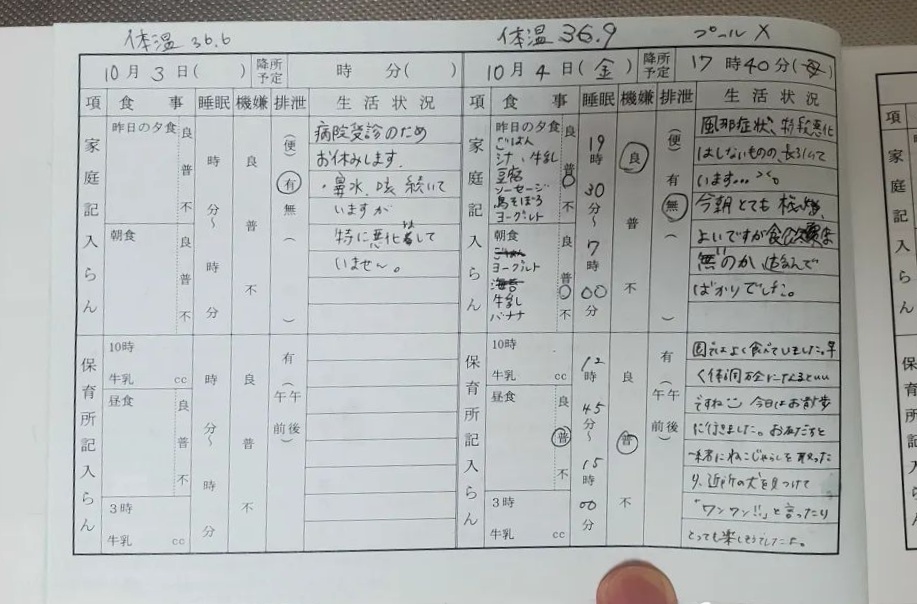 体温 36.6
10月 3日( )
降所予定
時 分( )
項
食事
睡眠
機嫌
排泄
生活状況
家庭記入らん
昨日の夕食
良
普
不
朝食
良
普
不
時
分
〜
時
分
良
普
不
(便)
有
無
( )
病院受診のため
お休みします.
・鼻水、咳 続いて
いますが
特に悪化はして
いません。
保育所記入らん
10時
牛乳 cc
昼食
良
普
不
3時
牛乳 cc
時
分
〜
時
分
良
普
不
有
(午前 午後)
体温 36.9
プール X
10月 4日(金)
降所予定
17時40分(母)
項
食事
睡眠
機嫌
排泄
生活状況
家庭記入らん
昨日の夕食
ごはん
汁、牛乳
豆腐
ソーセージ
鳥そぼろ
ヨーグルト
良
普
不
朝食
ヨーグルト
牛乳
バナナ
良
普
不
19時
30分
〜
7時
00分
良
普
不
(便)
有
無
( )
風邪症状、特段悪化
はしないものの、長引いて
います...
今朝とても
よいですが食欲は
無いのか 遊んで
ばかりでした。
保育所記入らん
10時
牛乳 cc
昼食
良
普
不
3時
牛乳 cc
12時
45分
〜
15時
00分
良
普
不
有
(午前 午後)
園ではよく食べていました。早
く体調万全になるといい
ですね 今日はお散歩
に行きました。お友だちと
一緒にねこじゃらしを取った
り、近所の犬を見つけて
「ワンワン!!」と言ったり
とっても楽しそうでしたよ。